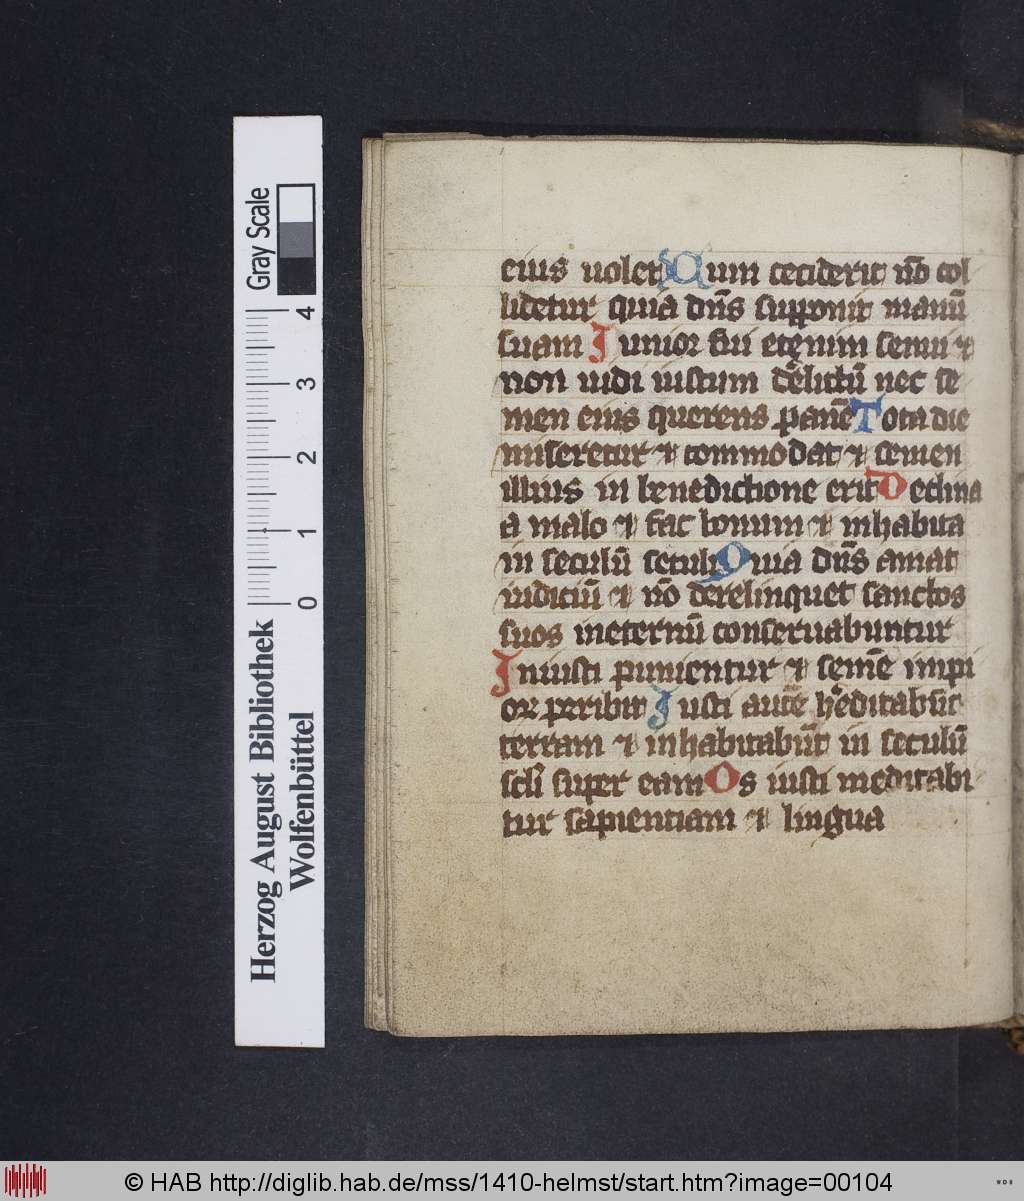 eius uolet Cum ceciderit nō col
lidetur quia dn̄s supponit manū
suam Iunior fui etenim senui ⁊
non uidi iustum dĕlictū nec se
men eius querens panē Tota die
miseretur ⁊ commodat ⁊ semen
illius in benedictione erit Declina
a malo ⁊ fac bonum ⁊ inhabita
in seculū seculi Quia dn̄s amat
iudiciū ⁊ nō derelinquet sanctos
suos ineternū conseruabuntur
Iniusti punientur ⁊ semē impi
or peribit Iusti autē hĕditabūt
terram ⁊ inhabitabūt in seculū
scl̄i super eam Os iusti meditabi
tur sapientiam ⁊ lingua
Gray Scale
4
3
2
1
0
Herzog August Bibliothek
Wolfenbüttel
© HAB http://diglib.hab.de/mss/1410-helmst/start.htm?image=00104